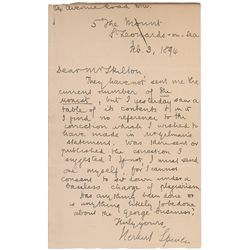 64, Avenue Road N.W.
5 The Mount
St Leonards-on-Sea
Feb. 3, 1896
Dear Mr Skilton,
They have not sent me the
current number of the
Monist, but I yesterday saw a
table of its contents & in it
I find no reference to the
correction which I wished to
have made in Mr
statement. Was there sent or
published the correction I
suggested? If not, I must send
one myself, for I cannot
consent to sit down under a
baseless charge of plagiarism
Has anything been done or
is anything likely to be done
about the "George business?
Truly yours
Herbert Spencer